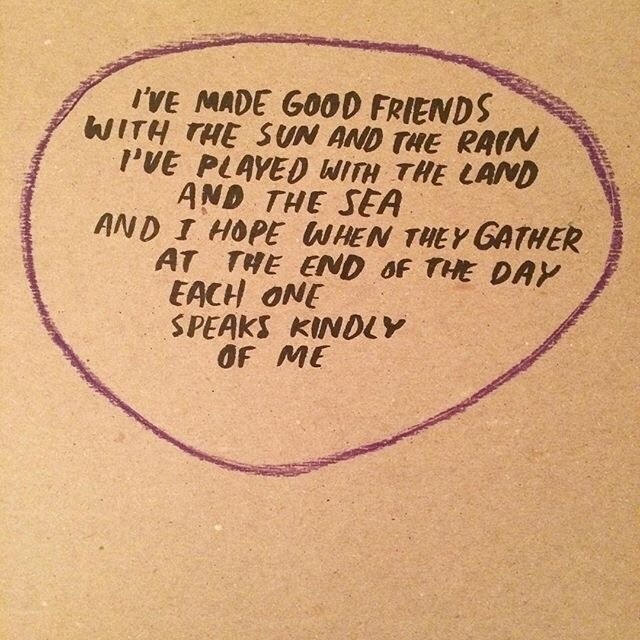 I'VE MADE GOOD FRIENDS
WITH THE SUN AND THE RAIN
I'VE PLAYED WITH THE LAND
AND THE SEA
AND I HOPE WHEN THEY GATHER
AT THE END OF THE DAY
EACH ONE
SPEAKS KINDLY
OF ME